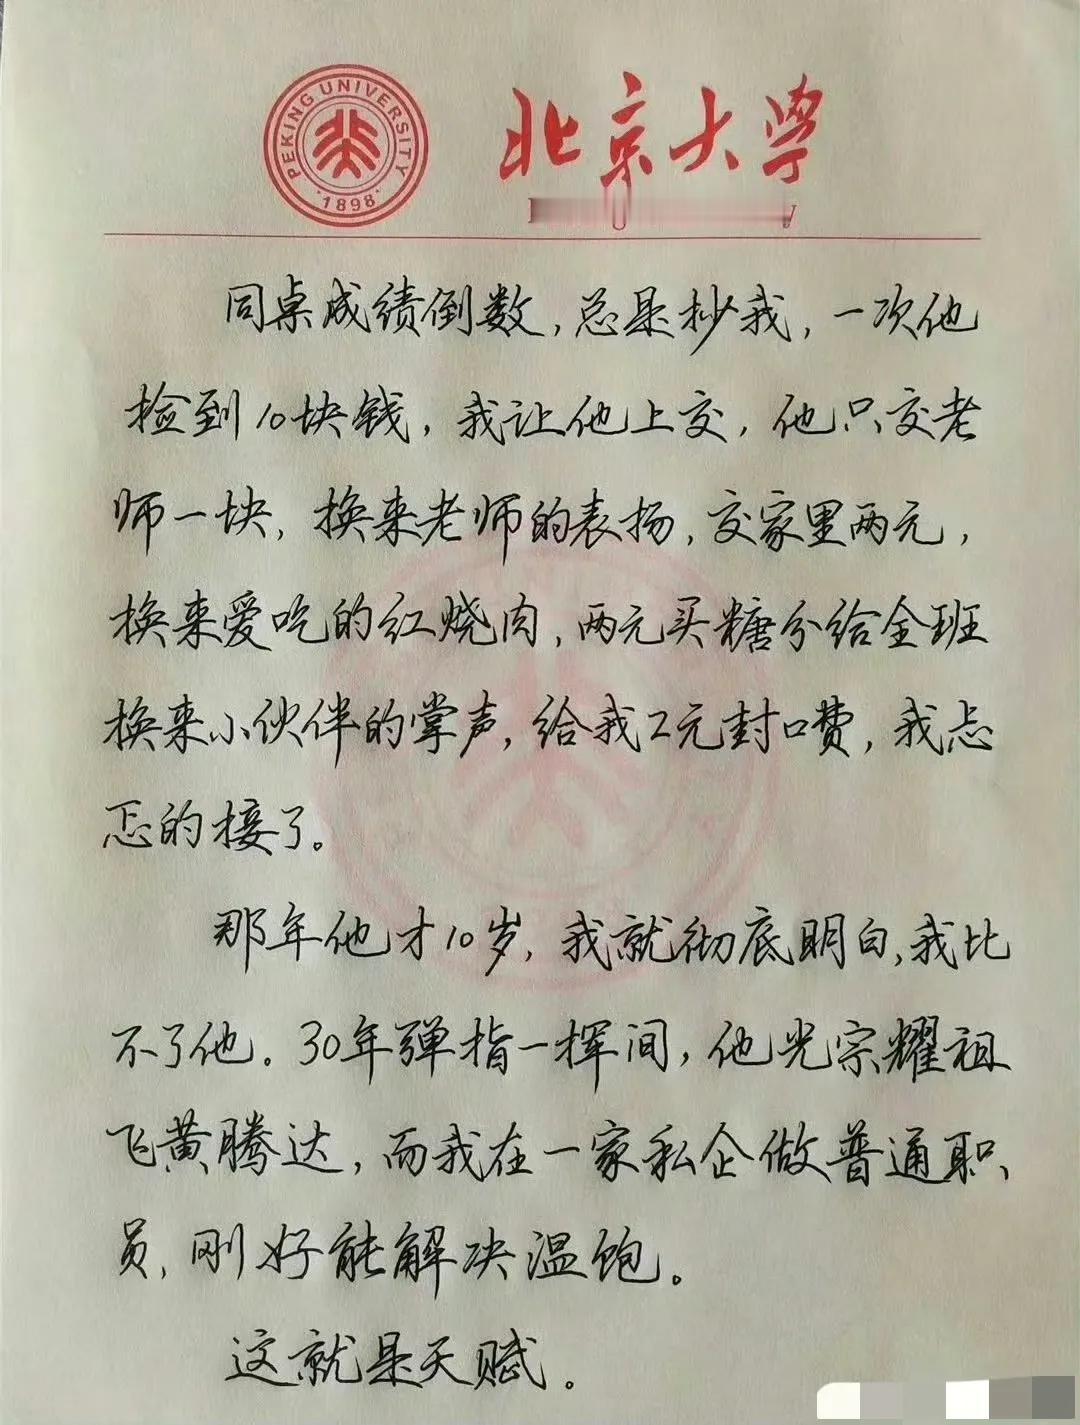 PEKING UNIVERSITY
1898
北京大学
同桌成绩倒数,总是抄我,一次他
捡到10块钱,我让他上交,他只交老
师一块,换来老师的表扬,交家里两元,
换来爱吃的红烧肉,两元买糖分给全班
换来小伙伴的掌声,给我2元封口费,我忐
忑的接了。
那年他才10岁,我就彻底明白,我比
不了他。30年弹指一挥间,他光宗耀祖
飞黄腾达,而我在一家私企做普通职
员,刚好能解决温饱。
这就是天赋。